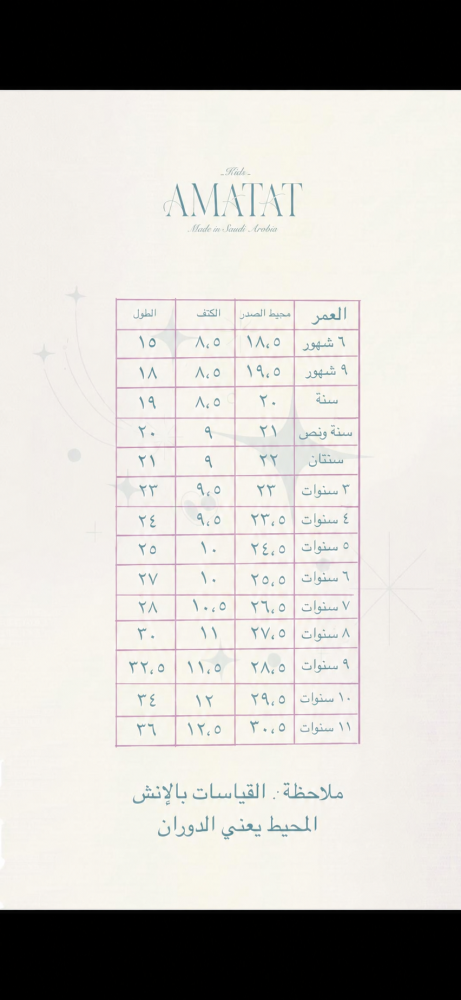 Kids
AMATAT
Made in Saudi Arabia
العمر محيط الصدر الكتف الطول
٦ شهور ١٨،٥ ٨،٥ ١٥
٩ شهور ١٩،٥ ٨،٥ ١٨
سنة ٢٠ ٨،٥ ١٩
سنة ونص ٢١ ٩ ٢٠
سنتان ٢٢ ٩ ٢١
٣ سنوات ٢٣ ٩،٥ ٢٣
٤ سنوات ٢٣،٥ ٩،٥ ٢٤
٥ سنوات ٢٤،٥ ١٠ ٢٥
٦ سنوات ٢٥،٥ ١٠ ٢٧
٧ سنوات ٢٦،٥ ١٠،٥ ٢٨
٨ سنوات ٢٧،٥ ١١ ٣٠
٩ سنوات ٢٨،٥ ١١،٥ ٣٢،٥
١٠ سنوات ٢٩،٥ ١٢ ٣٤
١١ سنوات ٣٠،٥ ١٢،٥ ٣٦
ملاحظة : القياسات بالإنش
المحيط يعني الدوران